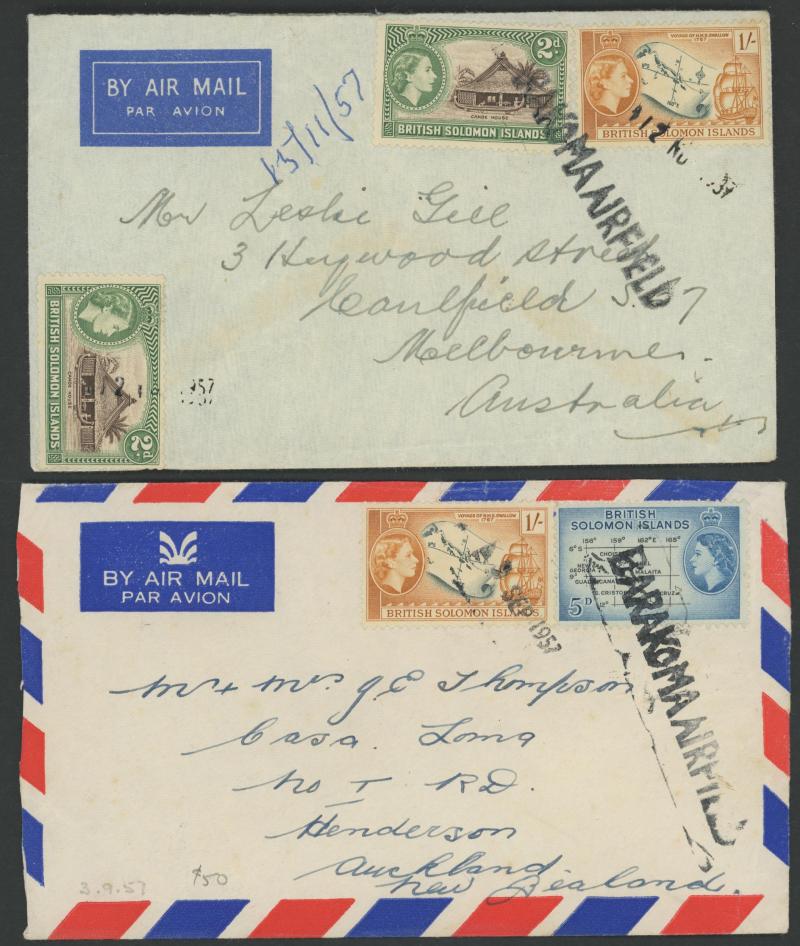 BY AIR MAIL
PAR AVION
13/11/57
2d.
CANOE HOUSE
BRITISH SOLOMON ISLANDS
VOYAGE OF H.M.S. SWALLOW
1767
1/-
BRITISH SOLOMON ISLANDS
AKOMA AIRFIELD
12 NO 1957
Mr Leslie Gill
3 Heywood Street
Caulfield S. 7
Melbourne.
Australia
2d.
CANOE HOUSE
BRITISH SOLOMON ISLANDS
12
1957
BY AIR MAIL
PAR AVION
VOYAGE OF H.M.S. SWALLOW
1767
1/-
BRITISH SOLOMON ISLANDS
SEP 1957
BRITISH
SOLOMON ISLANDS
156° 159° 162°E 165°
6°S
CHOIS
NEW
GEORGIA
MALAITA
9°
GUADALCANA
S. CRISTO CRUZ
12°
5D
BARAKOMA AIRFIELD
Mr + Mrs J E Thompson
Casa Loma
No 1 RD.
Henderson
Auckland
New Zealand.
3.9.57
$50